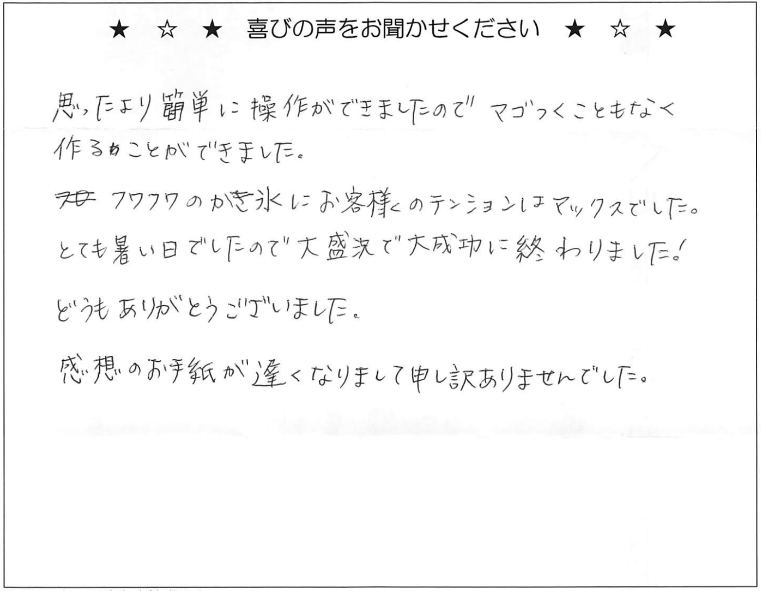 ★ ☆ ★ 喜びの声をお聞かせください ★ ☆ ★
思ったより簡単に操作ができましたので マゴつくこともなく
作ることができました。
フワフワのかき氷にお客様のテンションはマックスでした。
とても暑い日でしたので大盛況で大成功に終わりました!
どうもありがとうございました。
感想のお手紙が遅くなりまして申し訳ありませんでした。